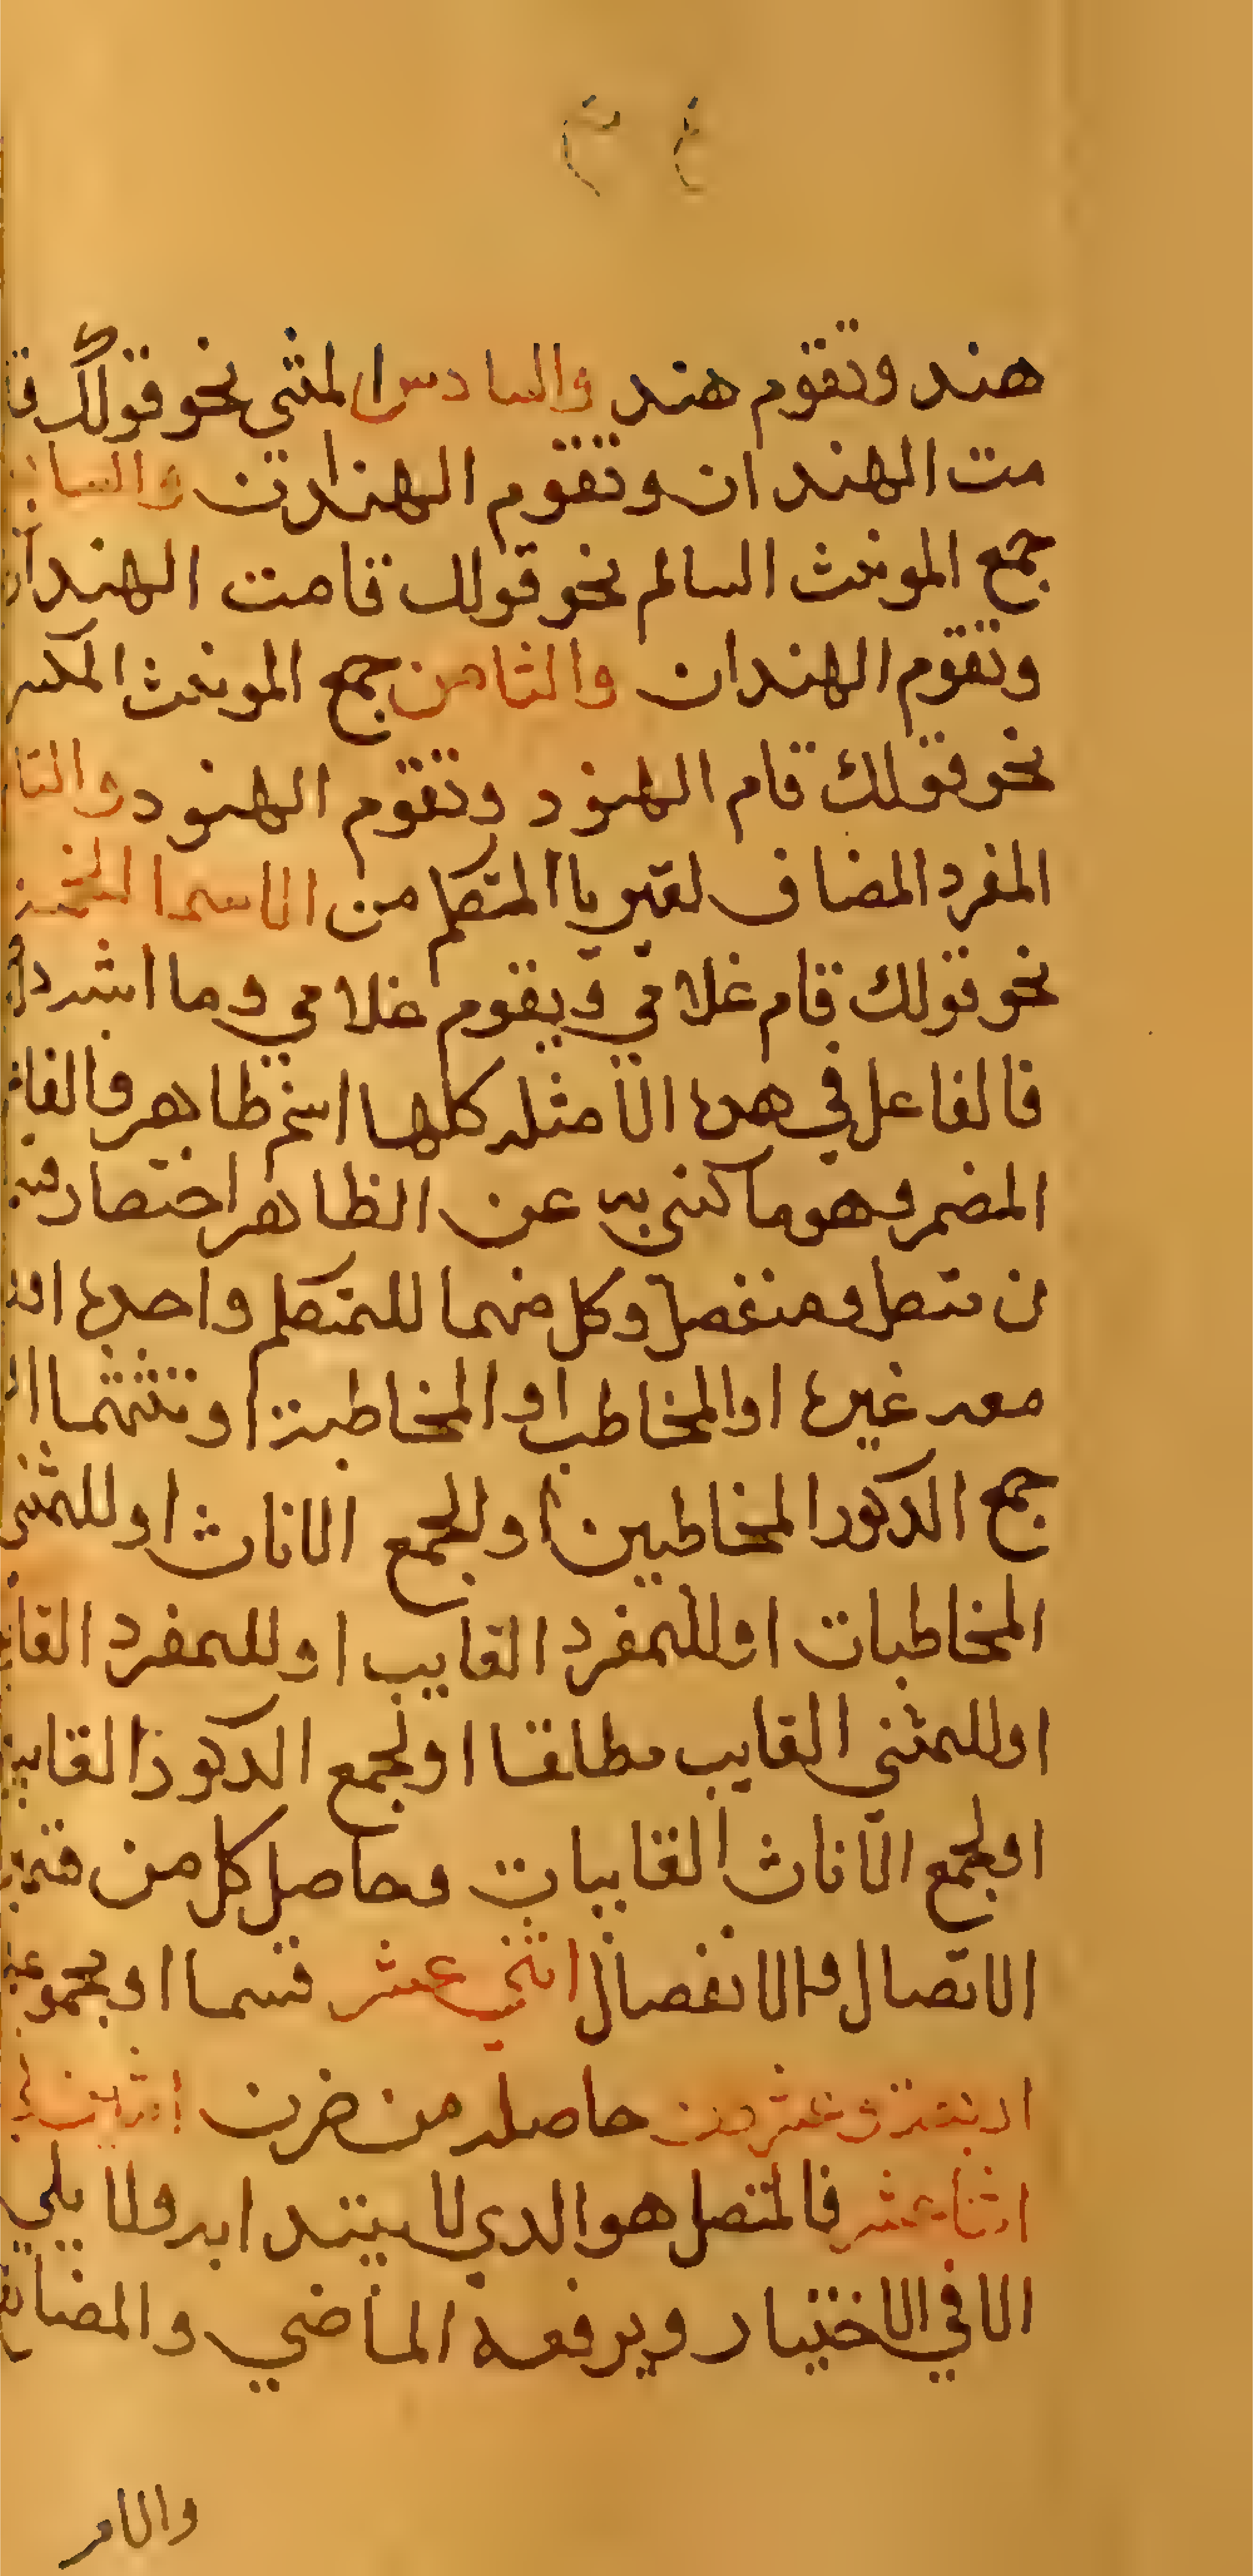 هند وتقوم هند والسادس المثنى نحو قولك قا
مت الهندان وتقوم الهندان والسا
جمع المونث السالم نحو قولك قامت الهندات
وتقوم الهندات والثامن جمع المونث المكسر
نحو قولك قام الهنود وتقوم الهنود والتا
المفرد المضاف لغير يا المتكلم من الاسما الخمسة
نحو قولك قام غلامي ويقوم غلامي وما اشبه
فالفاعل في هده الامثله كلها اسم ظاهر والفا
المضمر وهو ما كني به عن الظاهر اختصار
ن متصل ومنفصل وكل منهما للمتكلم واحده او
معه غيره او المخاطب او المخاطبة او تثنيتهما او
جمع الدكور المخاطبين او لجمع الاناث او للمثنى
المخاطبات او للمفرد الغايب او للمفرد الغا
او للمثني الغايب مطلقا او لجمع الدكور الغايبين
او لجمع الاناث الغايبات وحاصل كل من
الاتصال والانفصال اثني عشر قسما او مجموع
اربعة وعشرون حاصله من ضرب اثنين في
اثنا عشر فالمتصل هو الدي لا يبتدا به ولا يلي
الا في الاختيار ويرفعه الماضي والمضارع
والامر